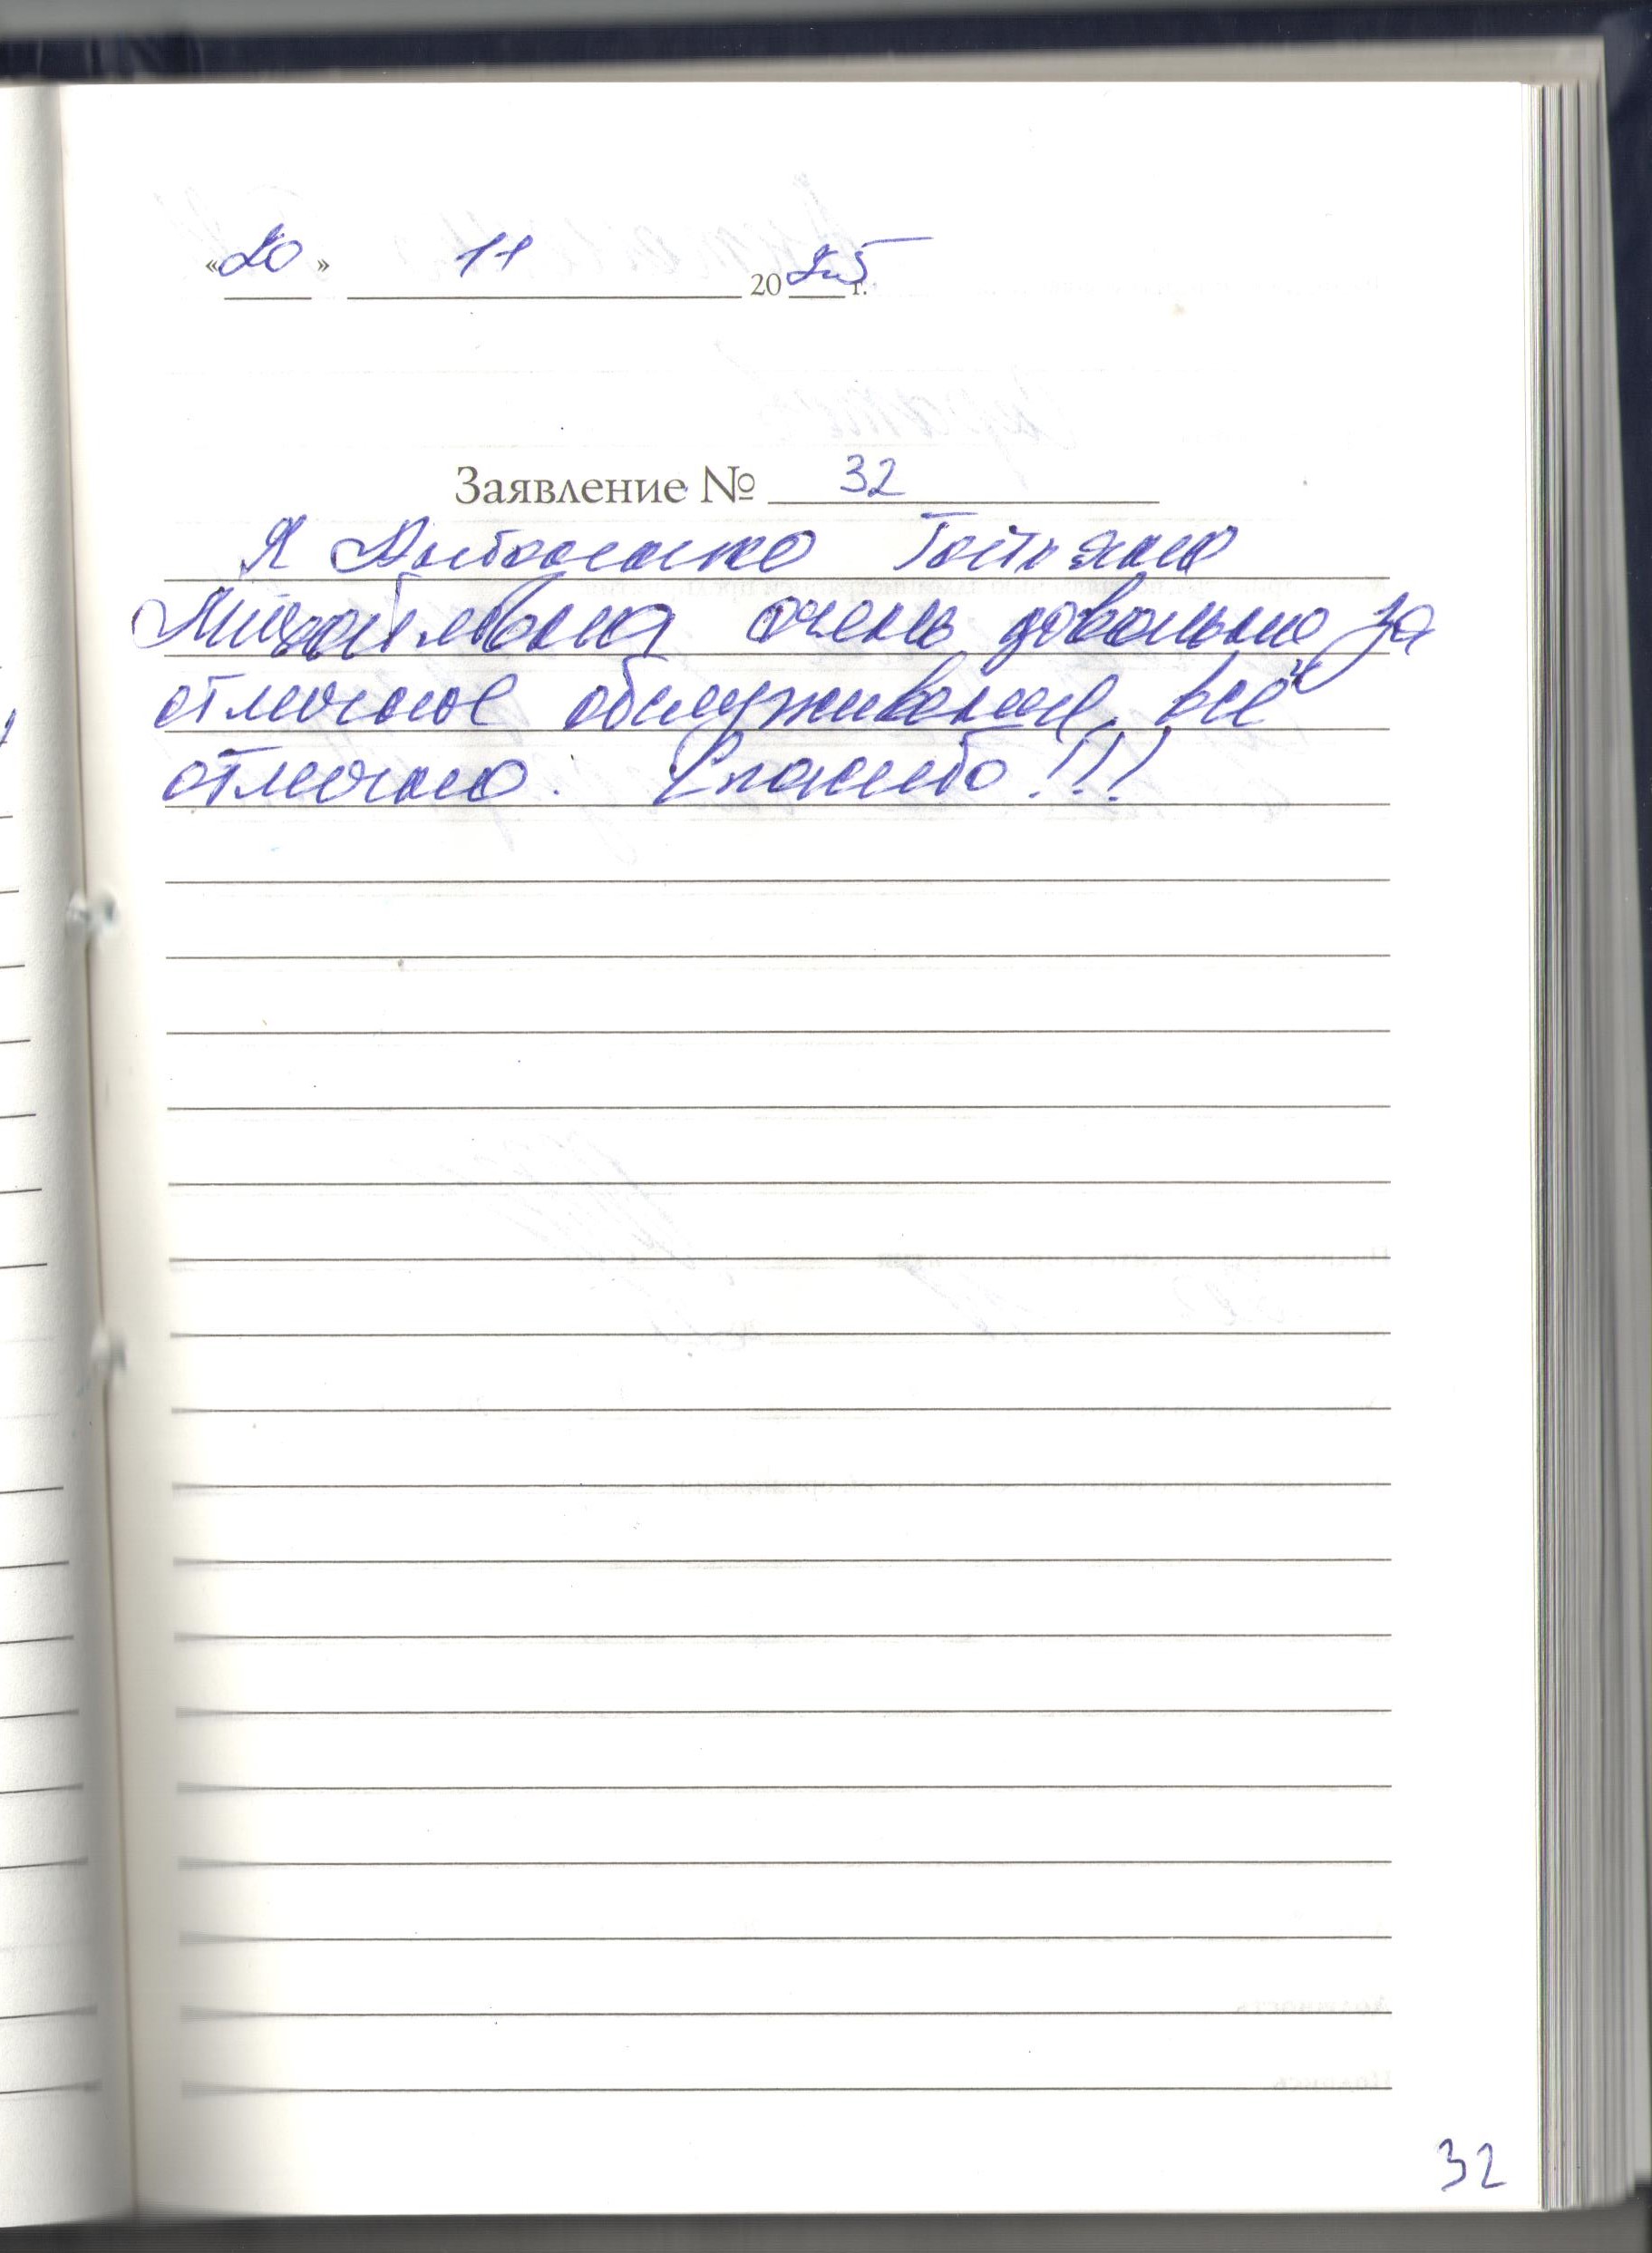 «20» 11 2025 г.
Заявление № 32
Я Татьяна
Михайловна очень довольна за
отличное обслуживание, всё
отлично. Спасибо!!!
32